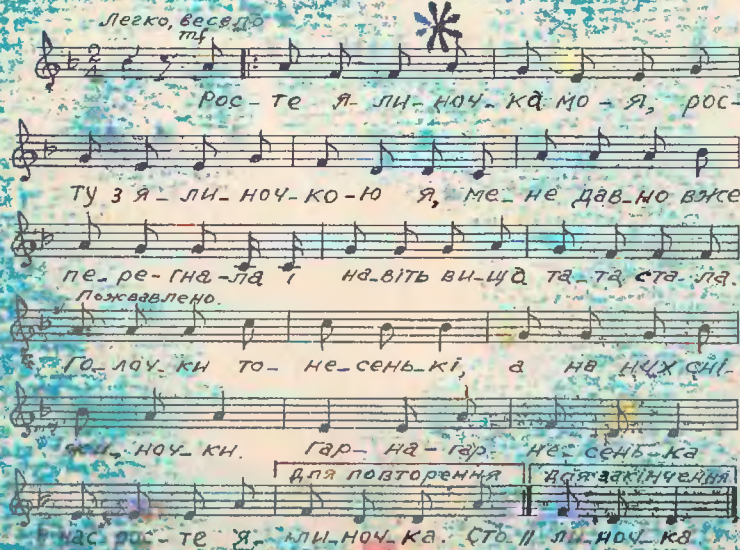 Легко, весело
mf
2
4
Рос- те я- ли- ноч- ка мо- я, рос-
ту з я- ли- ноч- ко- ю я, ме- не дав- но вже
пе- ре- гна- ла і на- віть ви- ща та- та ста- ла.
Пожвавлено.
Го- лоч- ки то- не- сень- кі, а на них сні-
жи- ноч- ки. Гар- на- гар- не- сень- ка
для повторення для закінчення
нас рос- те я- ли- ноч- ка. Сто || ли- ноч- ка.